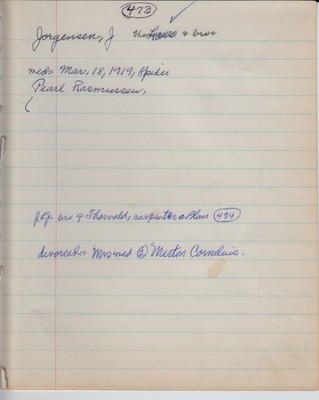 473
Jorgensen, J & bros
med = Mar. 18, 1919, Spiker
Pearl Rasmussen,
(
bro of Thorvald, carpenter @ Blair 474
divorced = Mrs med ② Merton Cornelius.